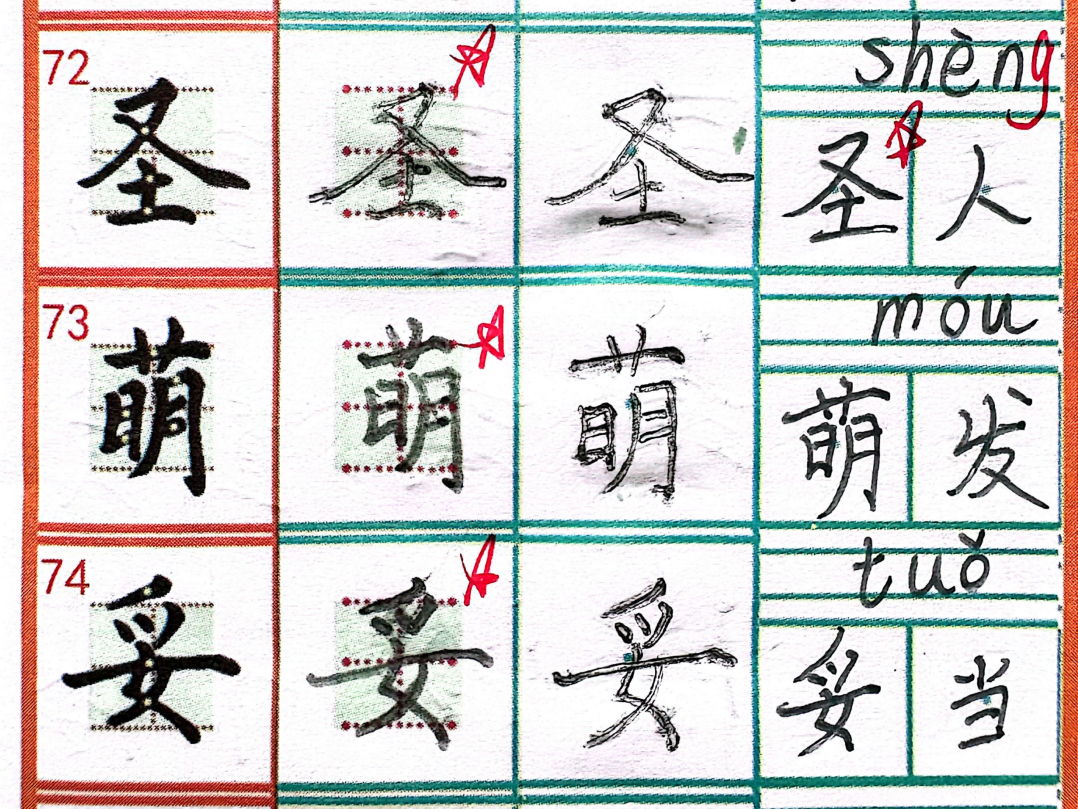 shèng
72 圣 圣 圣 圣人
móu
73 萌 萌 萌 萌发
tuǒ
74 妥 妥 妥 妥当